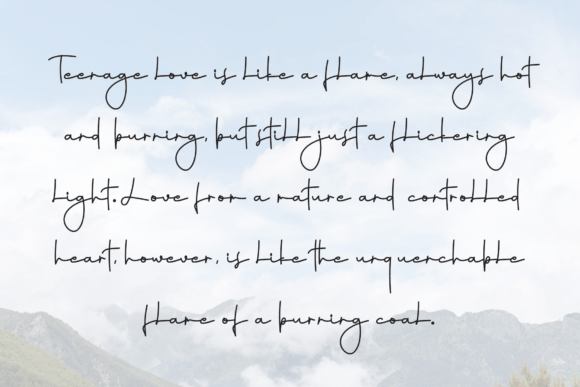 Teenage love is like a flame, always hot
and burning, but still just a flickering
light. Love from a mature and controlled
heart, however, is like the unquenchable
flame of a burning coal.